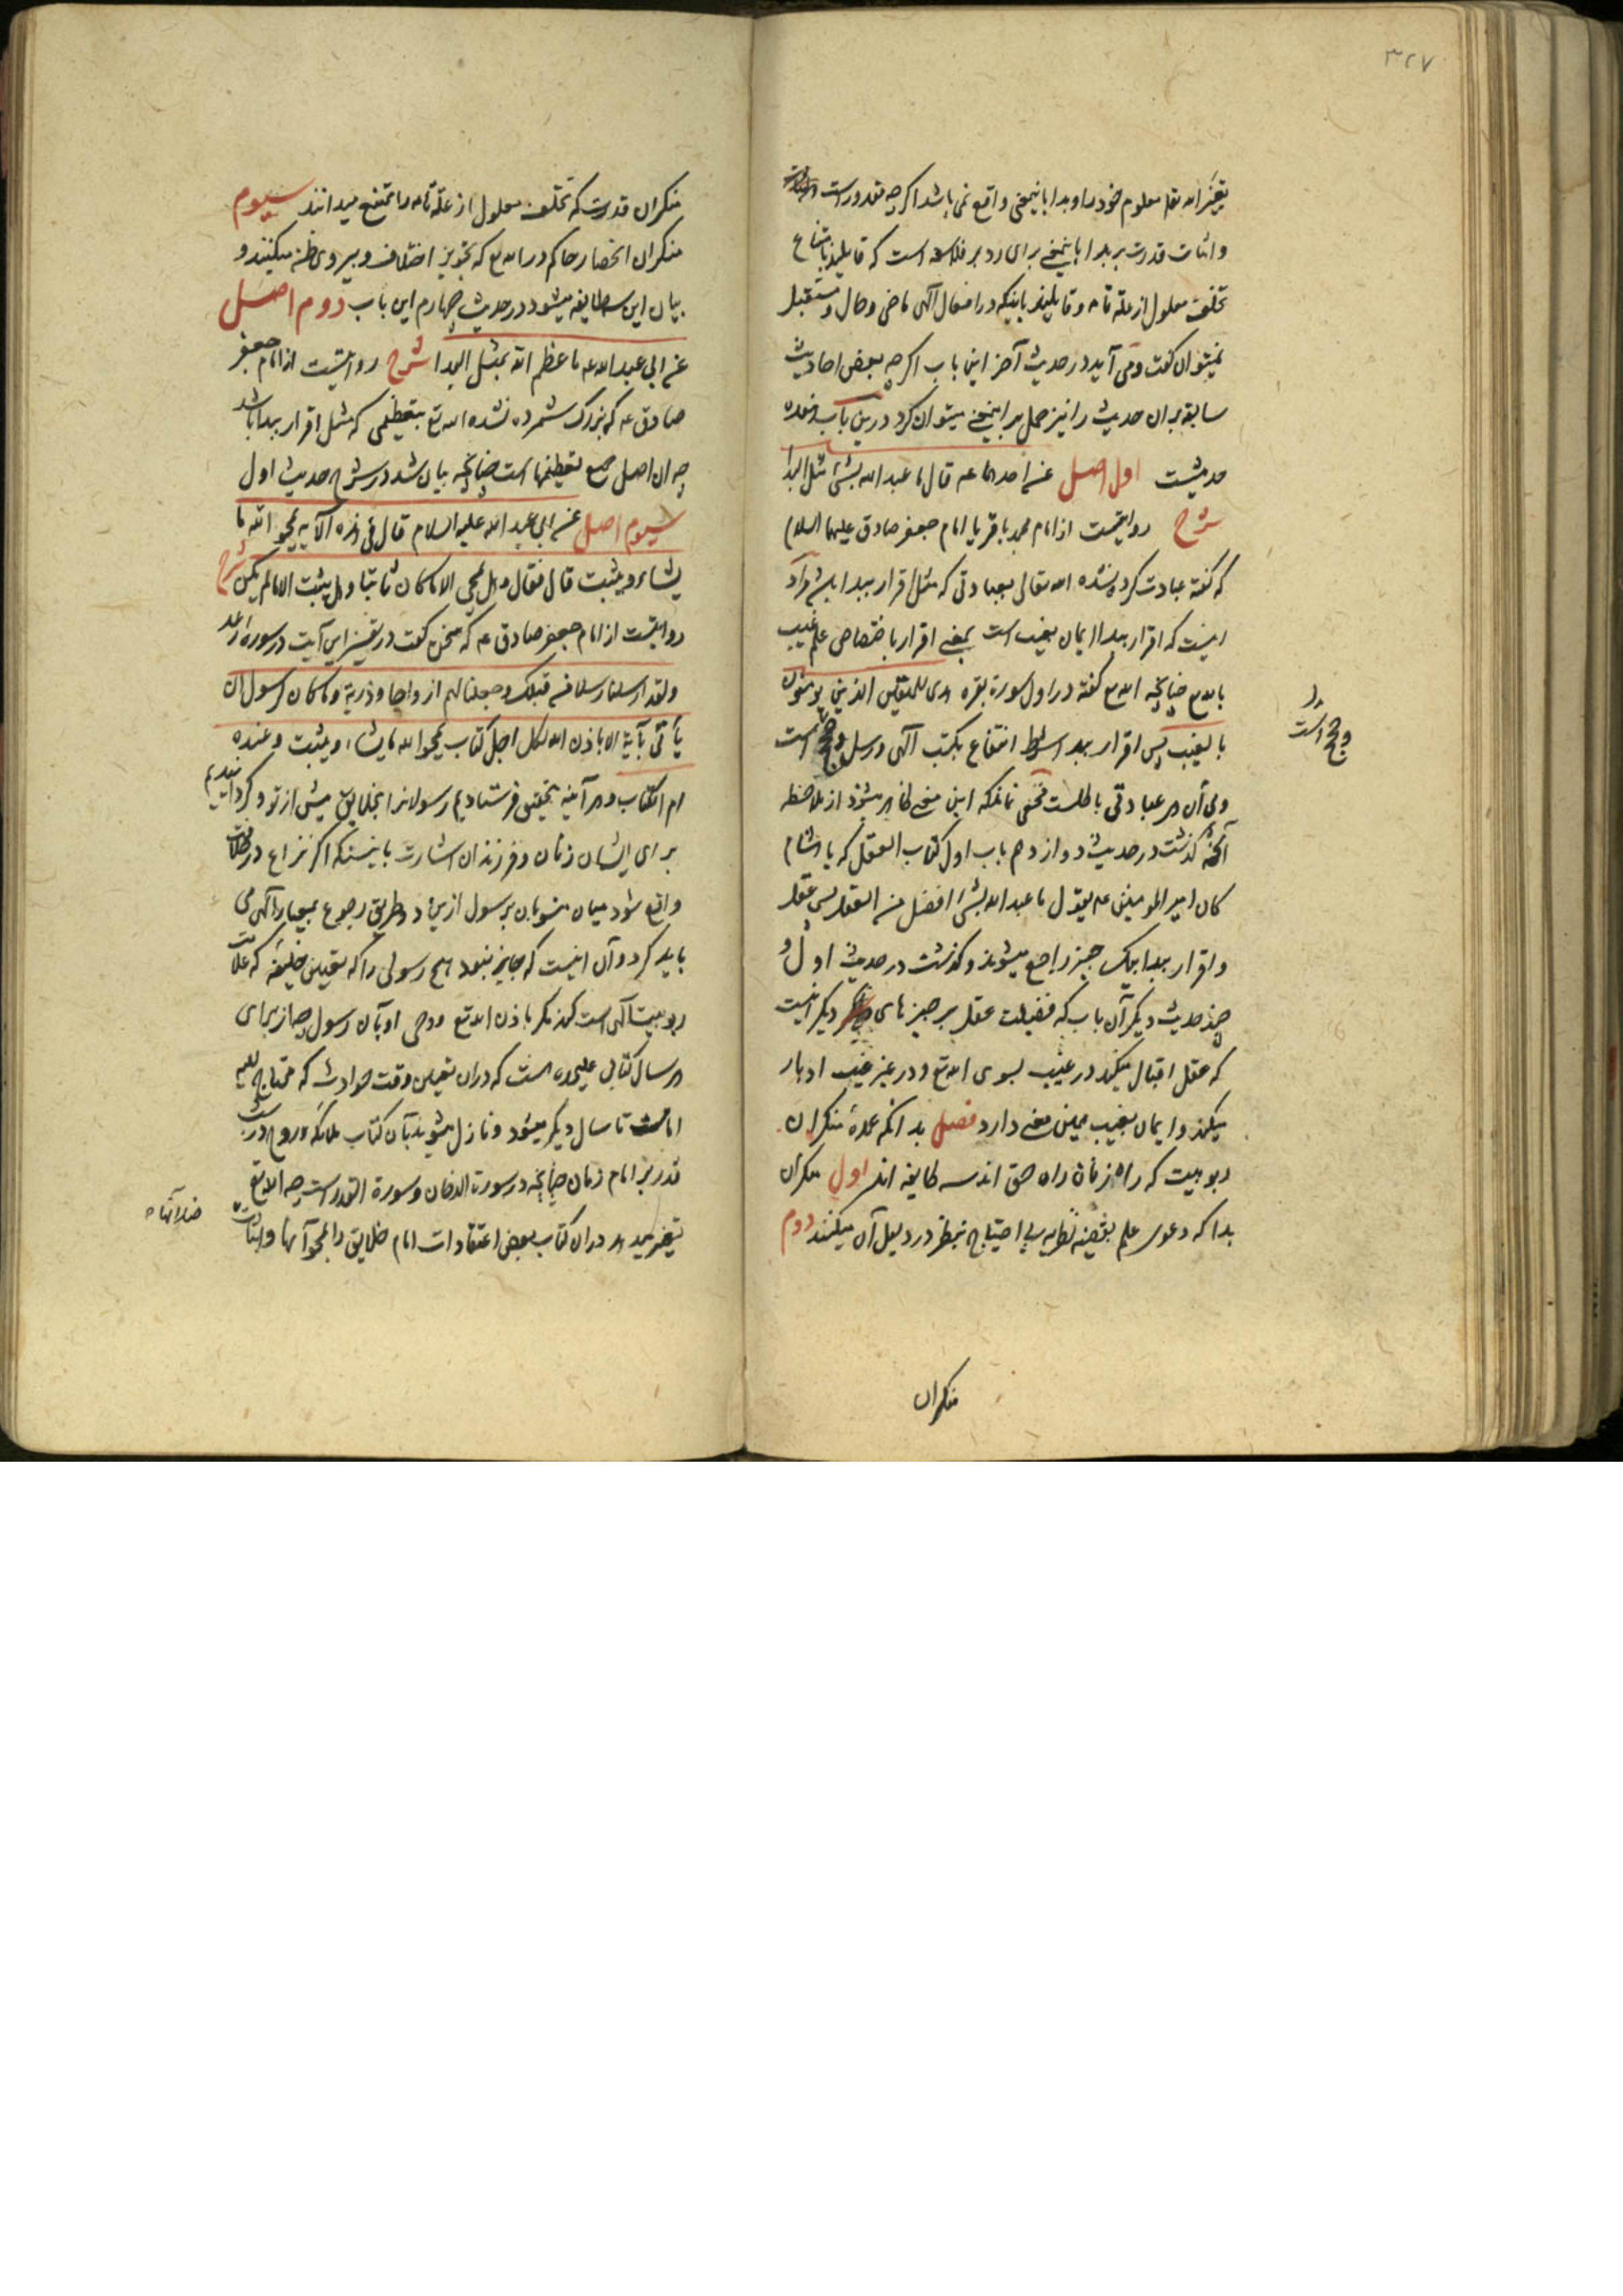 ۳۲۷
واثبات قدرت بر بدا باینمعنی برای رد بر فلاسفه است که قایلند بامتناع
تخلف معلول از علة تامه و قایلیند باینکه در افعال آلهی ماضی و حال و مستقبل
نمیتوان کفت و می آید در حدیث آخر این باب اکرچه بعضی احادیث
سابقه بر ان حدیث را نیز حمل بر اینمعنی میتوان کرد درین باب هفده
حدیثست اول اصل عن احدهما عه قال ما عبد الله بشئ مثل البدا
شرح روایتست از امام محمد باقر یا امام جعفر صادق علیهما السلام
که کفته عبادت کرده نشده الله تعالی بعبادتی که مثل اقرار ببدا باشد مراد
اینست که اقرار ببدا ایمان بغیب است بمعنی اقرار باختصاص علم غیب
بالله تع چنانچه الله تع کفته در اول سورة بقره هدی للمتقین الذین یومنون
بالغیب پس اقرار ببدا شرط انتفاع بکتب آلهی و رسل و حجج است
و حجج است
و بی آن هر عبادتی باطلست مخفی نماند که این معنی ظاهر میشود از ملاحظه
آنچه کذشت در حدیث دوازدهم باب اول کتاب العقل که یا هشام
کان امیر المومنین عه یقول ما عبد الله بشئ افضل من العقل پس عقل
و اقرار ببدا بیک چیز راجع میشوند و کذشت در حدیث اول و
چند حدیث دیکر آن باب که فضیلت عقل بر چیزهای دیکر اینست
که عقل اقبال میکند در غیب بسوی الله تع و در غیر غیب ادبار
میکند و ایمان بغیب همین معنی دارد فصل بدانکه عمدۀ منکران
ربوبیت که راه زنان راه حق اند سه طایفه اند اول منکران
بدا که دعوی علم بغیب بی احتیاج بنظر در دلیل آن میکنند دوم
منکران
منکران قدرت که تخلف معلول از علة تامه را ممتنع میدانند سیوم
منکران انحصار حاکم در الله تع که تجویز اختلاف و پیروی ظن میکنند و
بیان این سه طایفه میشود در حدیث چهارم این باب دوم اصل
عن ابی عبد الله عه ما عظم الله بمثل البدا شرح روایتست از امام جعفر
صادق عه که بزرک شمرده نشده الله تع بتعظیمی که مثل اقرار ببدا باشد
چه ان اصل جمیع تعظیمها است چنانچه بیان شد در شرح حدیث اول
سیوم اصل عن ابی عبد الله علیه السلام قال فی هذه الآیه یمحو الله ما
یشاء و یثبت قال فقال و هل یمحی الا ما کان ثابتا و هل یثبت الا ما لم یکن شرح
روایتست از امام جعفر صادق عه که سخن کفت در تفسیر این آیت در سوره رعد
ولقد ارسلنا رسلا من قبلک وجعلنا لهم ازواجا وذریة وما کان لرسول ان
یأتی بآیة الا باذن الله لکل اجل کتاب یمحوا الله ما یشاء ویثبت وعنده
ام الکتاب و هر آینه بتحقیق فرستادیم رسولانرا بخلایق پیش از تو و کردانیدیم
برای ایشان زنان و فرزندان اشارت باینست که اکر نزاع در
واقع شود میان منسوبان بر رسول از ین دو طریق رجوع بمعیار آلهی می
باید کرد و آن اینست که جایز نبود هیچ رسولی را که تعیین خلیفه که علامت
ربوبیت آلهی است کند مکر باذن الله تع و وحی او بآن رسول چه از برای
هر سال کتابی علیحده هست که در ان تعیین وقت حوادث که محتاج الیه
امامست تا سال دیکر میشود و نازل میشوند بآن کتاب ملائکه و روح در شب
قدر بر امام زمان چنانچه در سورة الدخان و سورة القدر است چه الله تع
تغییر میدهد در ان کتاب بعض اعتقادات امام خلایق را بمحو آنها و اثبات
ضد آنها